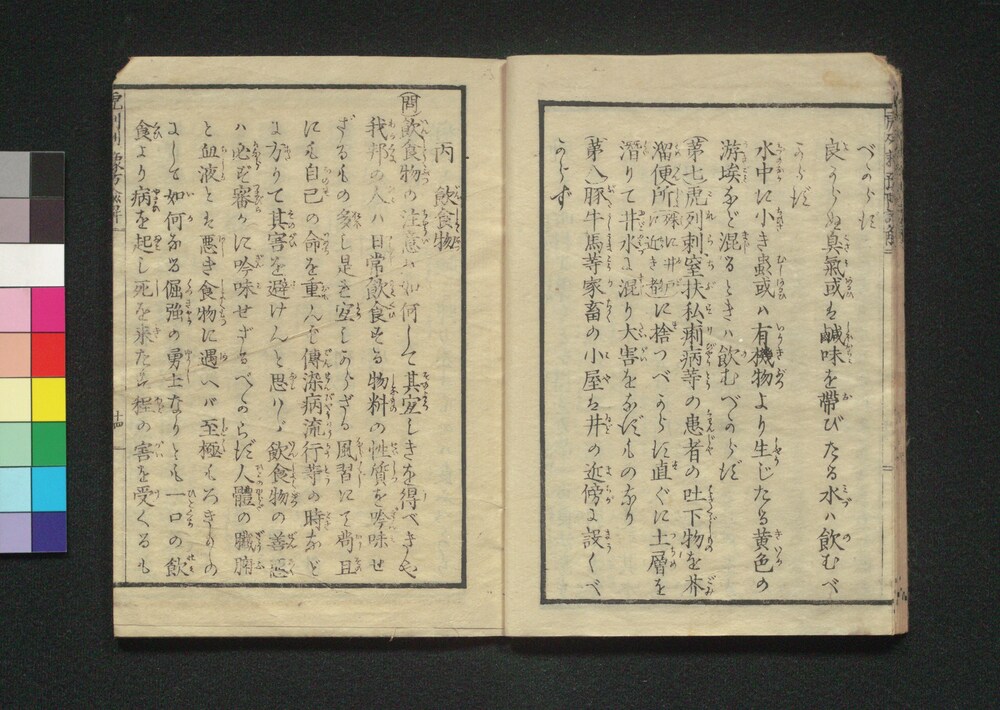 べからず
良からぬ臭氣或は鹹味を帶びたる水ハ飲むべ
からず
水中に小き蟲或ハ有機物より生じたる黄色の
游埃など混るときハ飲むべからず
(第七)虎列剌窒扶私痢病等の患者の吐下物を芥
溜便所に近き処に捨つべからず直ぐに土層を
潜りて井水に混り大害をなすものなり
(第八)豚牛馬等家畜の小屋は井の近傍に設くべ
からず
丙 飲食物
(問)飲食物の注意は如何して其宜しきを得べきや
我邦の人ハ日常飲食する物料の性質を吟味せ
ざるもの多し是を宜しからざる風習にて尚且
にも自己の命を重んじ傳染病流行等の時など
に方りて其害を避けんと思ハゞ飲食物の善悪
ハ必ず審かに吟味せざるべからず人體の臓腑
と血液とは悪き食物に遇へバ至極もろきもの
にして如何なる倔強の勇士なりとも一口の飲
食より病を起し死を来たす程の害を受くるも
十四